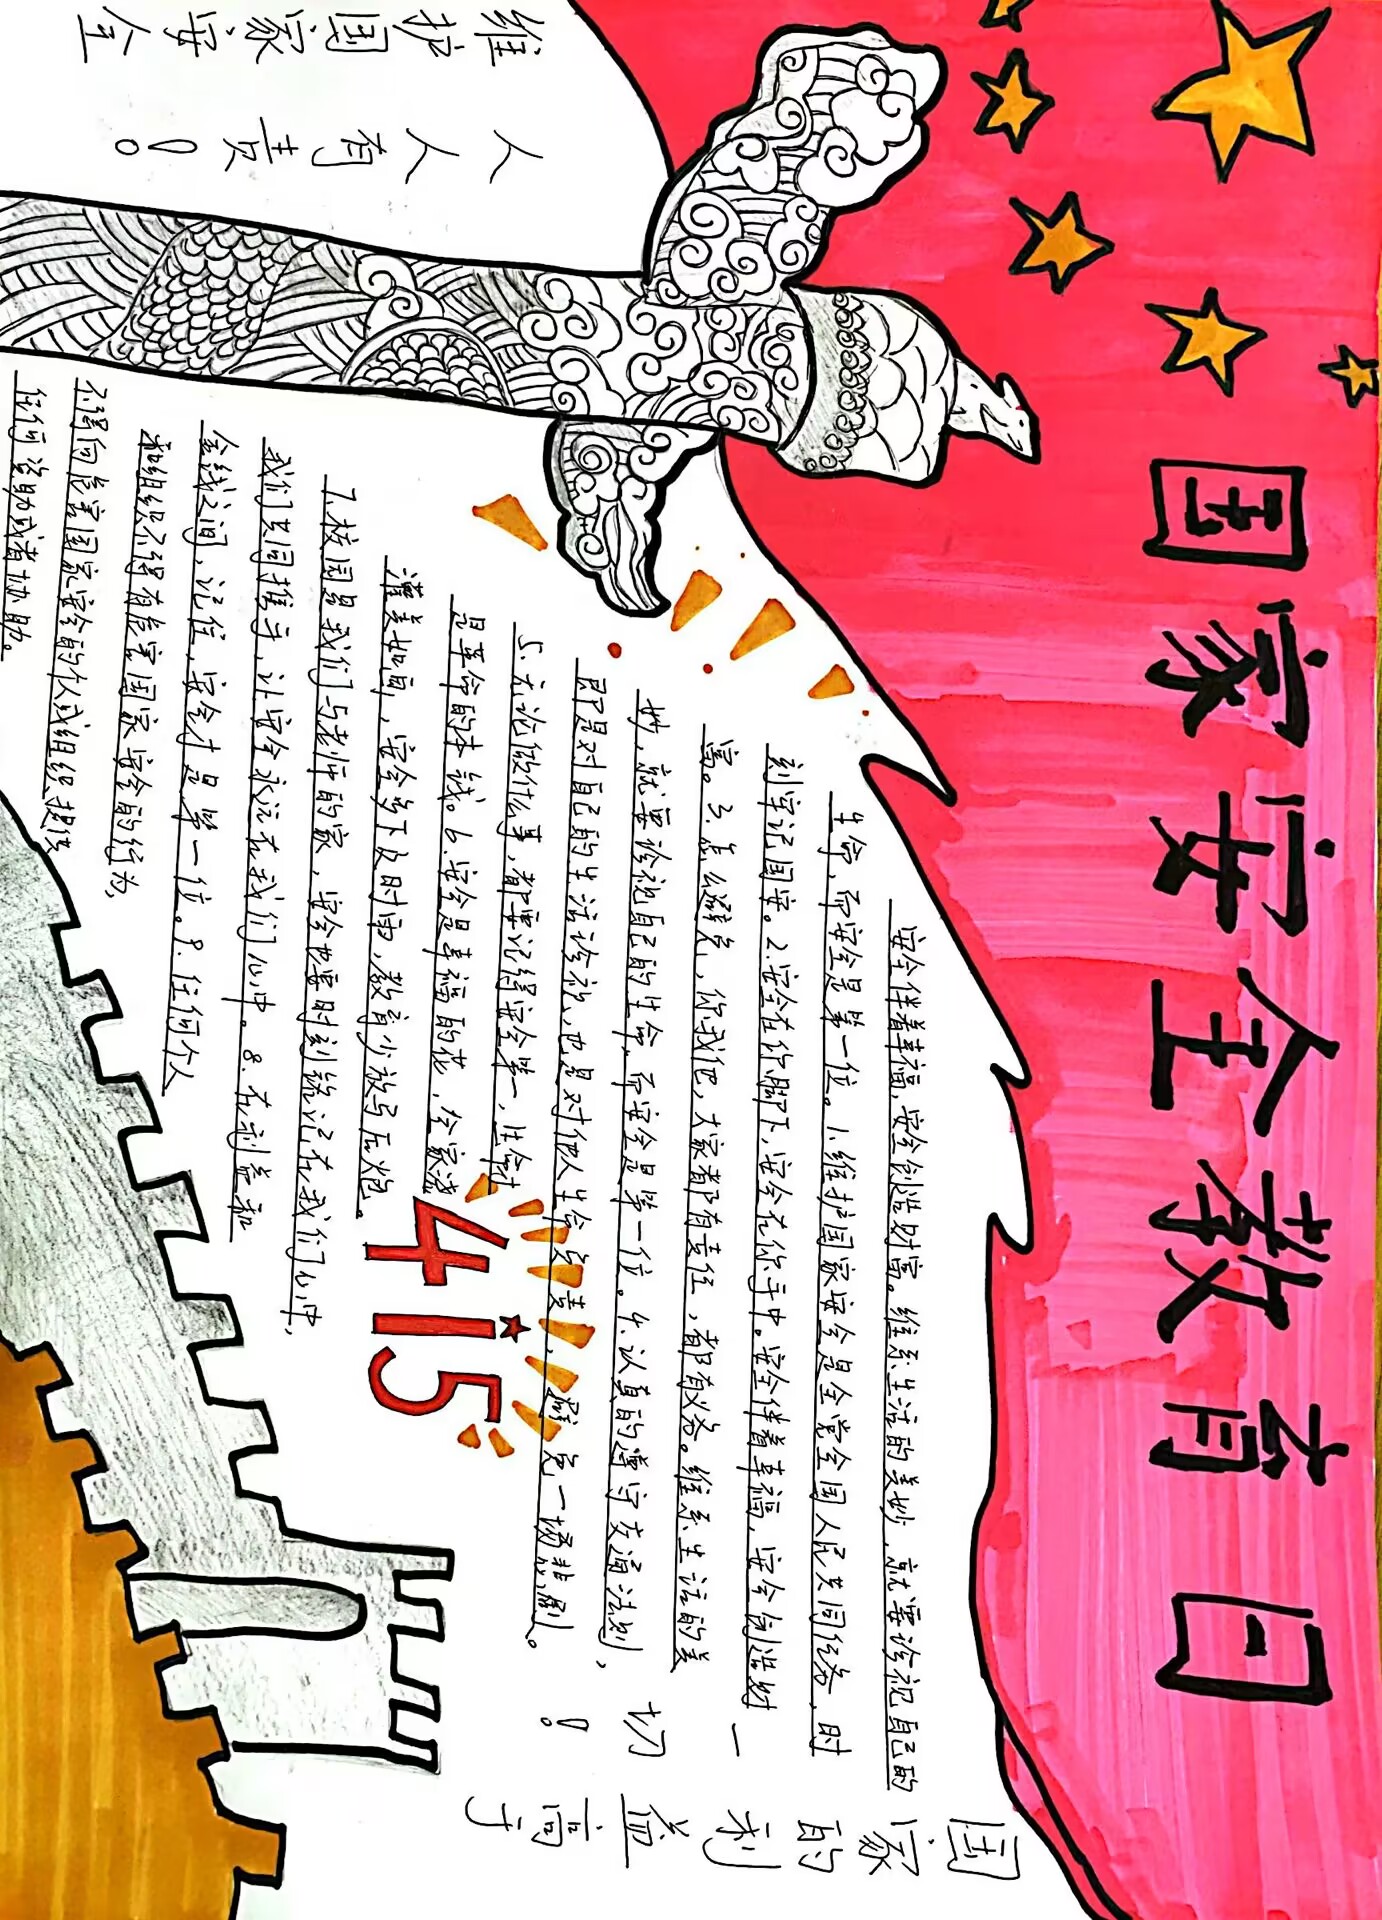 国家安全教育日
维护国家安全
人人有责！
安全伴着幸福，安全创造财富。维系生活的美妙，就要诊视自己的
生命，而安全是第一位。1.维护国家安全是全党全国人民共同任务，时
刻牢记国安。2.安全在你脚下，安全在你手中。安全伴着幸福，安全创造财
富。3.怎么避免，你我他，大家都有责任，都有义务。维系生活的美
妙，就要诊视自己的生命，而安全是第一位。4.认真的遵守交通法则，
即是对自己的生活诊视，也是对他人生命负责，避免一场悲剧。
5.无论做什么事，都要记得安全第一，生命才
是革命的本钱。6.安全是幸福的花，全家浇
灌美如画，安全多下及时雨，教育少放马后炮。
7.校园是我们与老师的家，安全也要时刻铭记在我们心中，
我们共同携手，让安全永远在我们心中。8.在利益和
金钱之间，记住，安全才是第一位。9.任何个人
和组织不得有危害国家安全的行为，
不得向危害国家安全的个人或组织提供
任何资助或者协助。
415
国家的利益高于
一切！